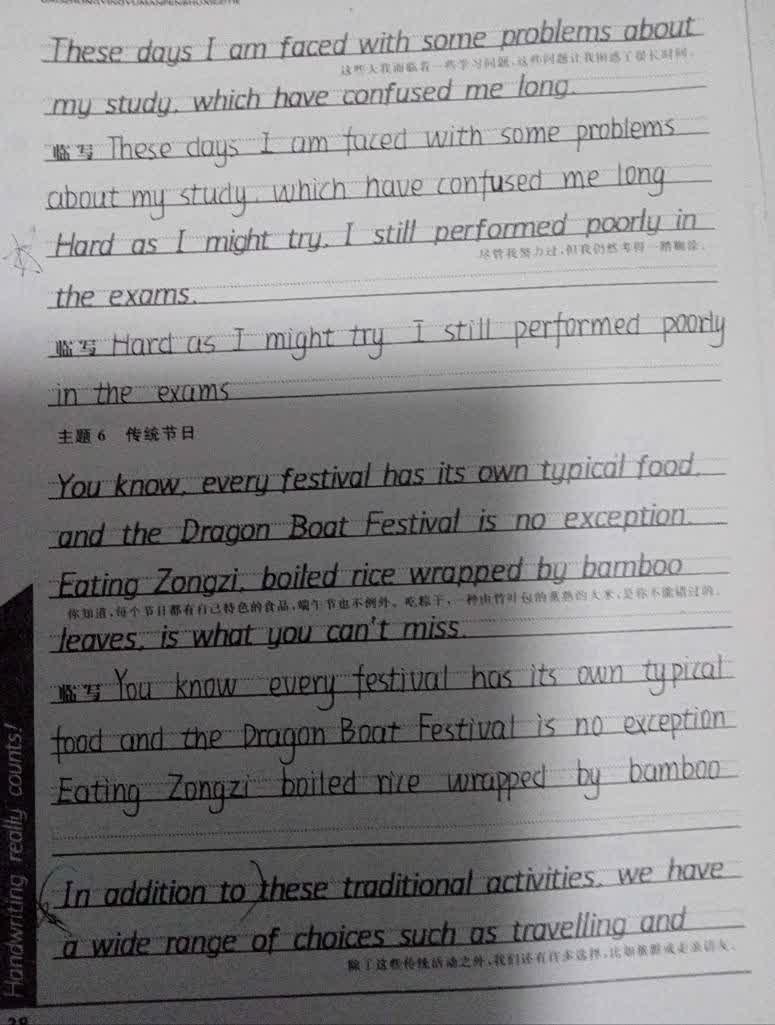 These days I am faced with some problems about
这些天我面临着一些学习问题,这些问题让我困惑了很长时间。
my study, which have confused me long.
临写 These days I am faced with some problems
about my study, which have confused me long
Hard as I might try, I still performed poorly in
尽管我努力过,但我仍然考得一塌糊涂。
the exams.
临写 Hard as I might try I still performed poorly
in the exams
主题6 传统节日
You know, every festival has its own typical food,
and the Dragon Boat Festival is no exception.
Eating Zongzi, boiled rice wrapped by bamboo
你知道,每个节日都有自己特色的食品,端午节也不例外。吃粽子,一种由竹叶包的蒸熟的大米,是你不能错过的。
leaves, is what you can't miss.
临写 You know every festival has its own typical
food and the Dragon Boat Festival is no exception
Eating Zongzi boiled rice wrapped by bamboo
In addition to these traditional activities, we have
a wide range of choices such as travelling and
除了这些传统活动之外,我们还有许多选择,比如旅游或走亲访友。
Handwriting really counts!